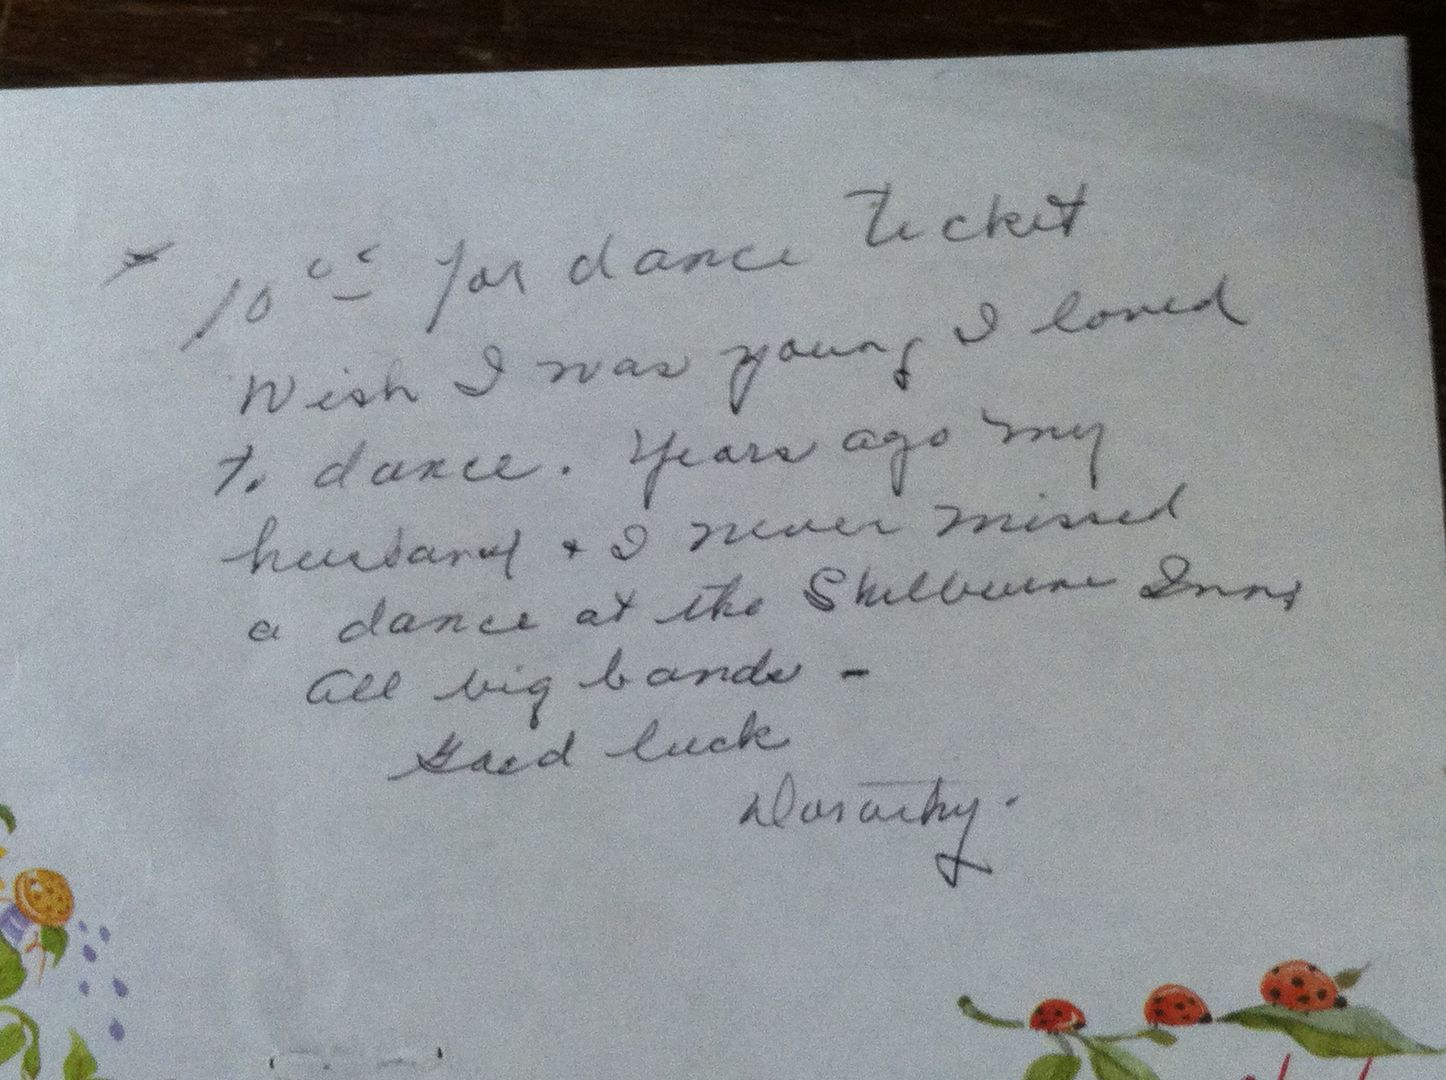 10⁰⁰ for dance ticket
Wish I was young, I loved
to dance. Years ago my
husband + I never missed
a dance at the Shelburne Inn,
all big bands -
Good luck
Dorothy.